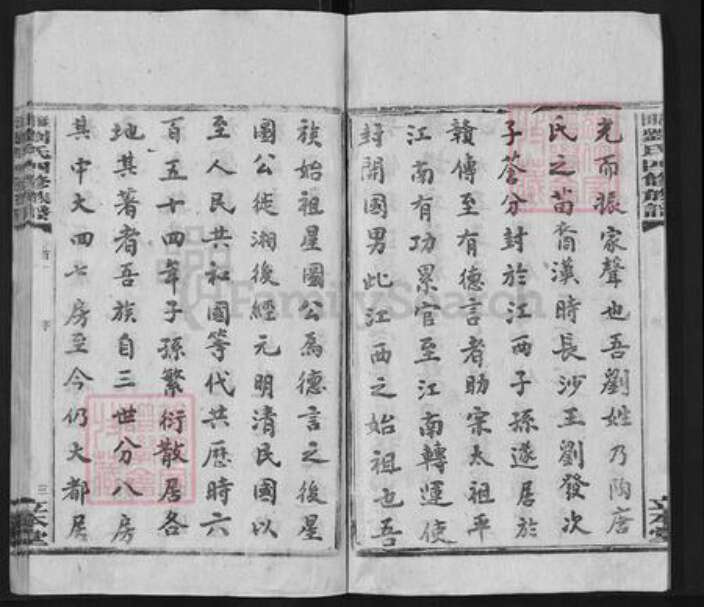 光而振家聲也吾劉姓乃陶唐
氏之苗裔漢時長沙王劉發次
子蒼分封於江西子孫遂居於
贛傳至有德言者助宋太祖平
江南有功累官至江南轉運使
封開國男此江西之始祖也吾
族始祖星國公為德言之後星
國公徙湘後經元明清民國以
至人民共和國等代共歷時六
百五十四年子孫繁衍散居各
地其著者吾族自三世分八房
其中大四七房至今仍大都居
劉氏四修族譜
首一
序
三
立本堂
FamilySearch